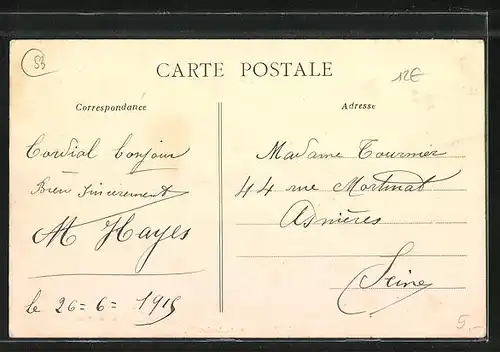 53
CARTE POSTALE
12E
Correspondance
Adresse
Cordial bonjour
Bien sincèrement
M Hayes
le 26=6=1915
Madame Tournier
44 rue Mortinat
Asnières
Seine
5.-